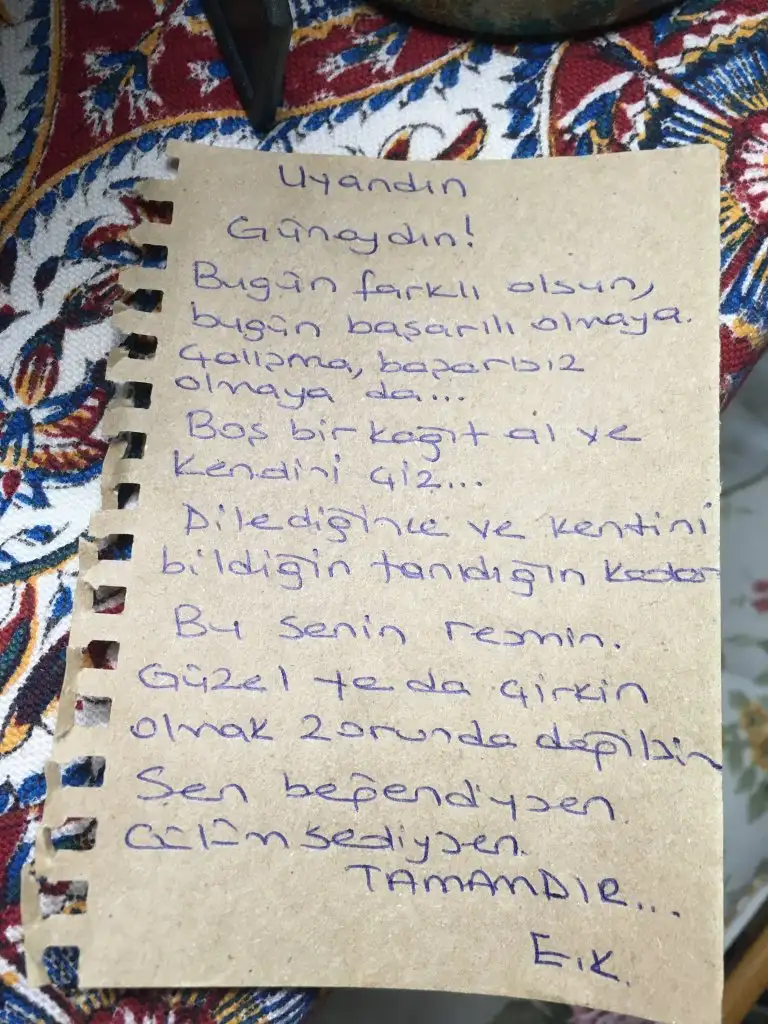 Uyandın
Günaydın!
Bugün farklı olsun,
bugün başarılı olmaya.
Çalışma, başarısız
olmaya da...
Boş bir kağıt al ve
Kendini çiz...
Dilediğince ve kentini
bildiğin tanıdığın kadar
Bu senin resmin.
Güzel ya da çirkin
olmak zorunda değilsin
Sen beğendiysen.
Gülümsediysen.
TAMAMDIR...
E.K.